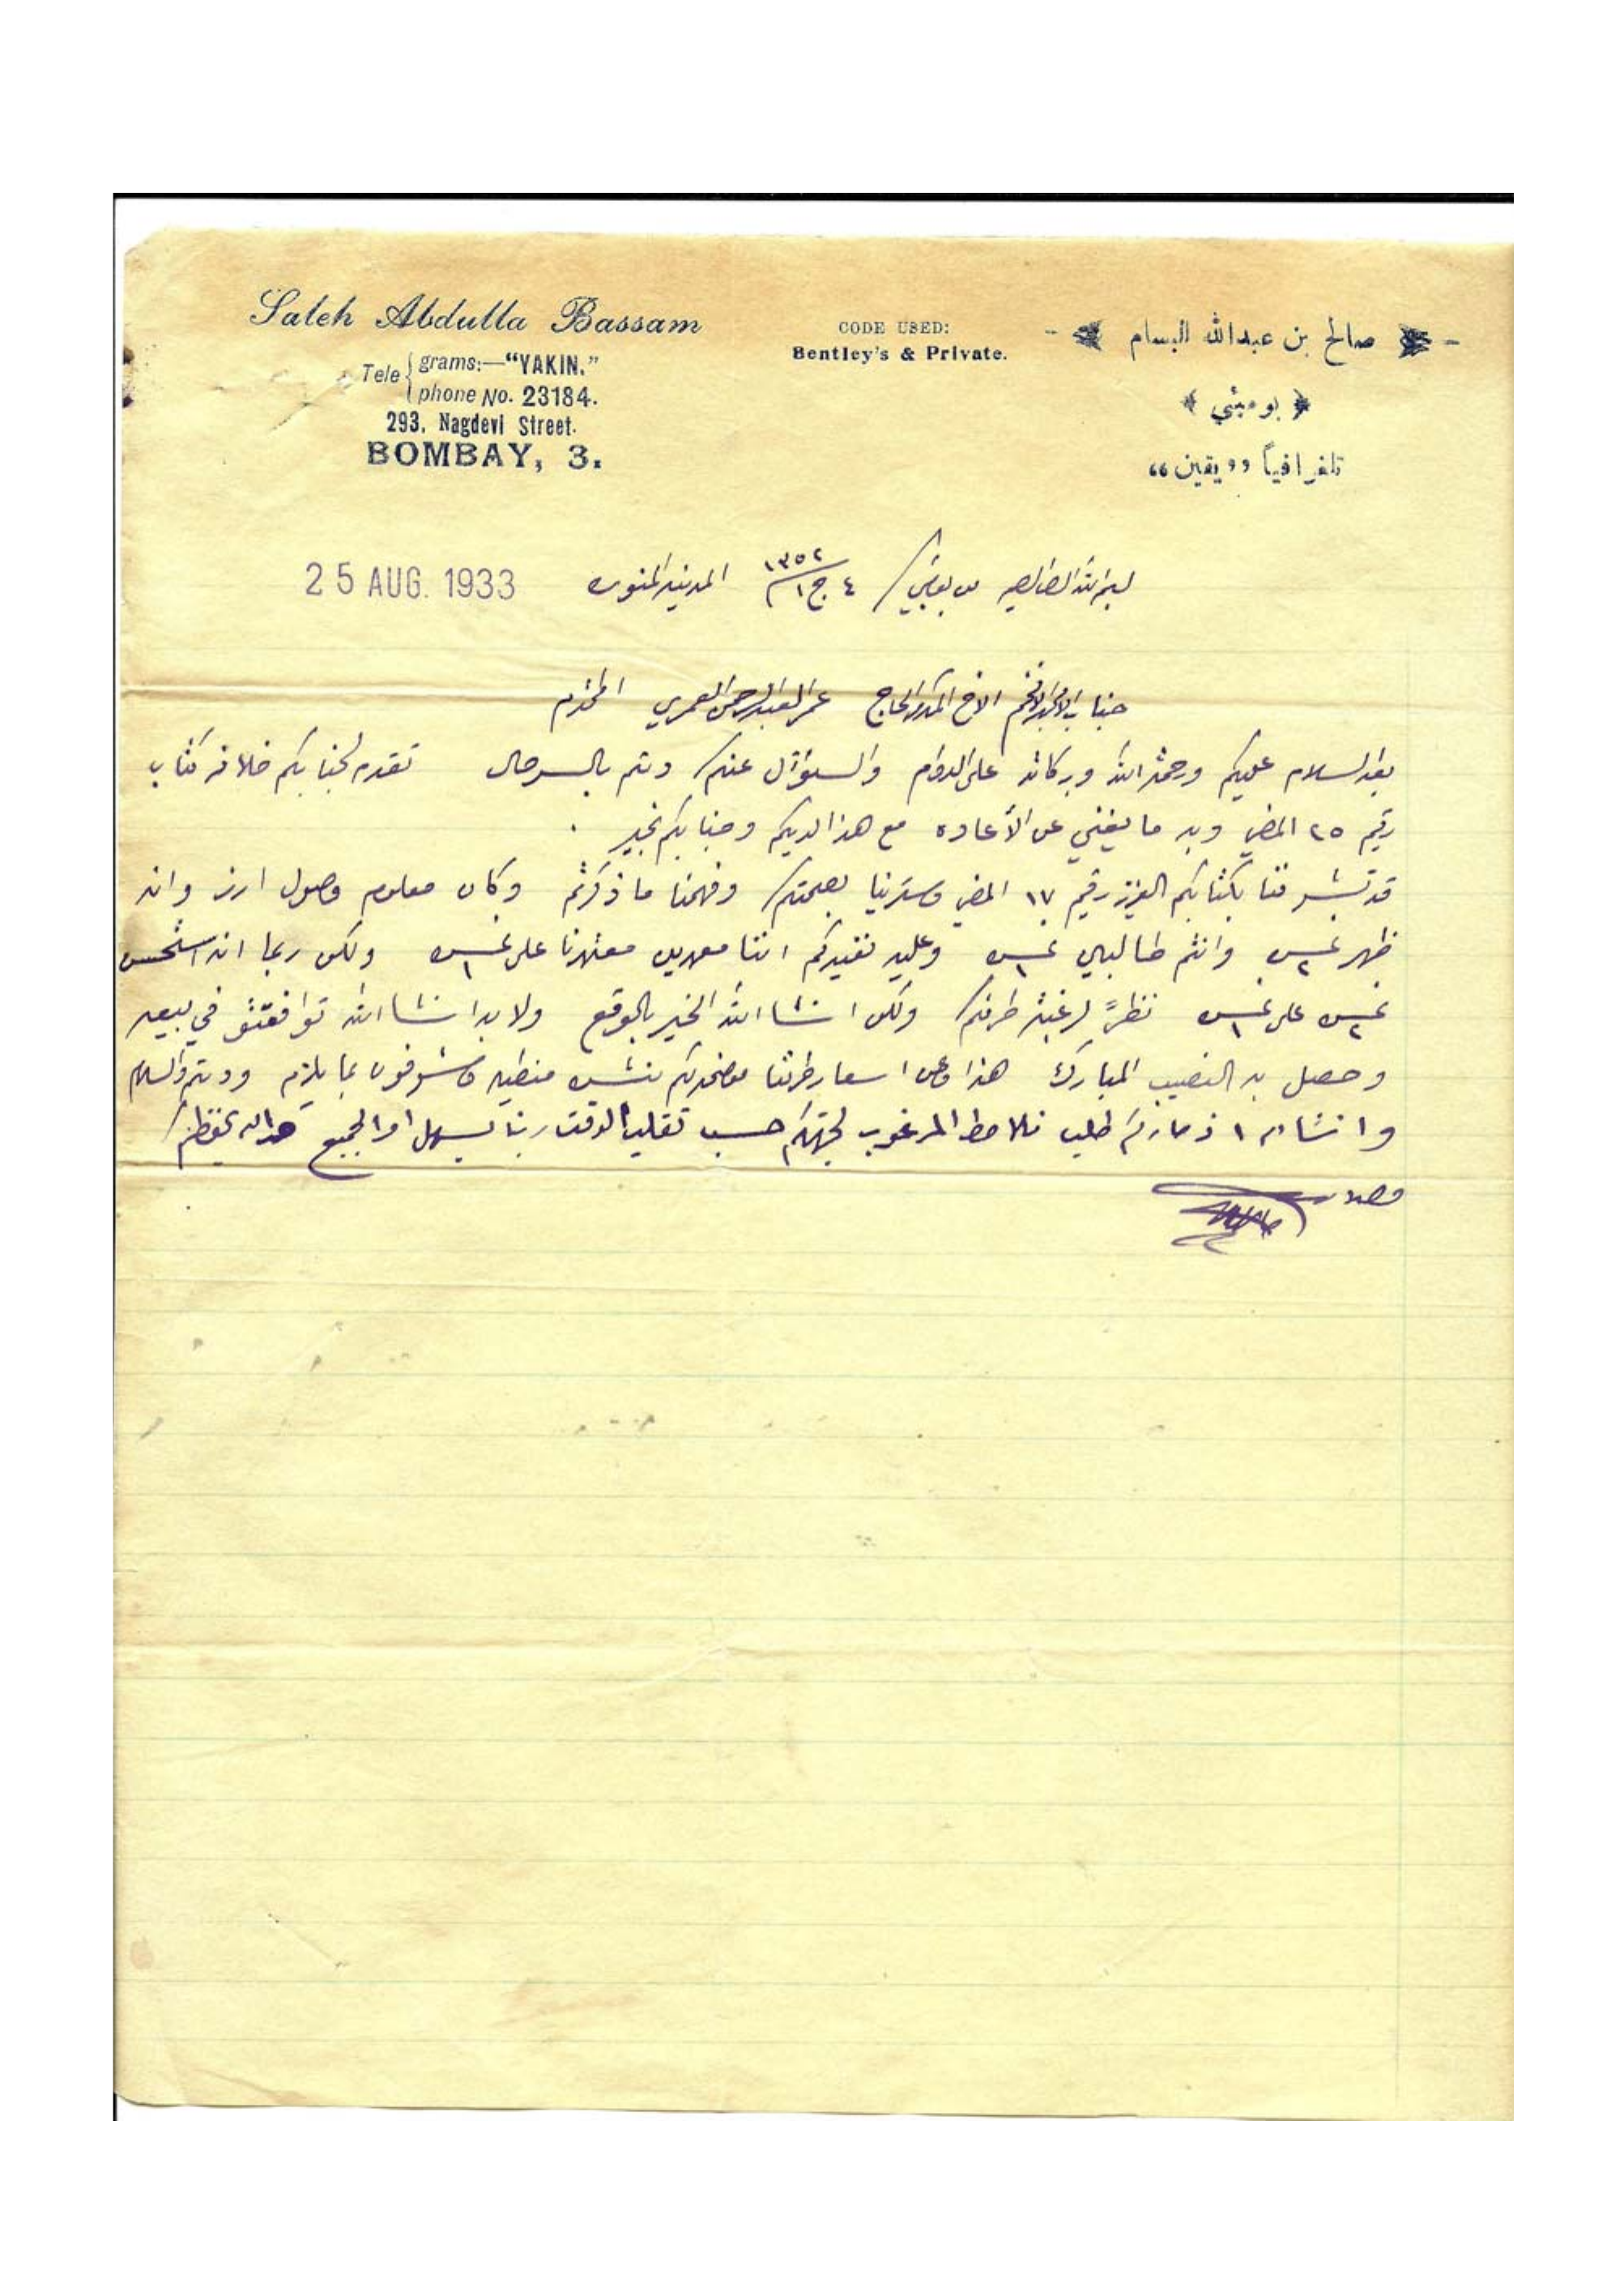 Saleh Abdulla Bassam
Tele grams:—"YAKIN."
phone No. 23184.
293, Nagdevi Street.
BOMBAY, 3.
CODE USED:
Bentley's & Private.
صالح بن عبدالله البسام
بومبئي
تلغرافياً „يقين“
من بمبي ٤ ج ١ ١٣٥٢ المدينه المنوره
25 AUG. 1933
جناب الامجد الافخم الاخ المكرم الحاج عمر العبدالرحمن العمري المحترم
بعد السلام عليكم ورحمة الله وبركاته على الدوام والسؤال عنكم دمتم بالسرحال تقدم لجنابكم خلافه كتاب
رقيم ٢٥ الماضي وبه ما يغني عن الأعاده مع هذا لديكم وجنابكم بخير .
قد تشرفنا بكتابكم العزيز رقيم ١٧ الماضي وسرينا بصحتكم وفهمنا ما ذكرتم وكان معلوم وصول ارز وانه
ظهر ٢ وانتم طالبين ١ وعليه نفيدكم اننا معمدين على ١ ولكن ربما انه استحسن
٢ على ١ نظراً لرغبة طرفكم ولكن انشاالله الخير بالوقع ولابد انشاالله توافقتو في بيعه
وحصل به النصيب المبارك هذا وعن اسعار طرفنا موضحه لكم وتشوفون بما يلزم ودمتم والسلام
وانشاء الله اذ صار لكم طلب نلاحظ المرغوب لجهتكم حسب تقليب الوقت ربنا يسهل امر الجميع هذا والله يحفظكم